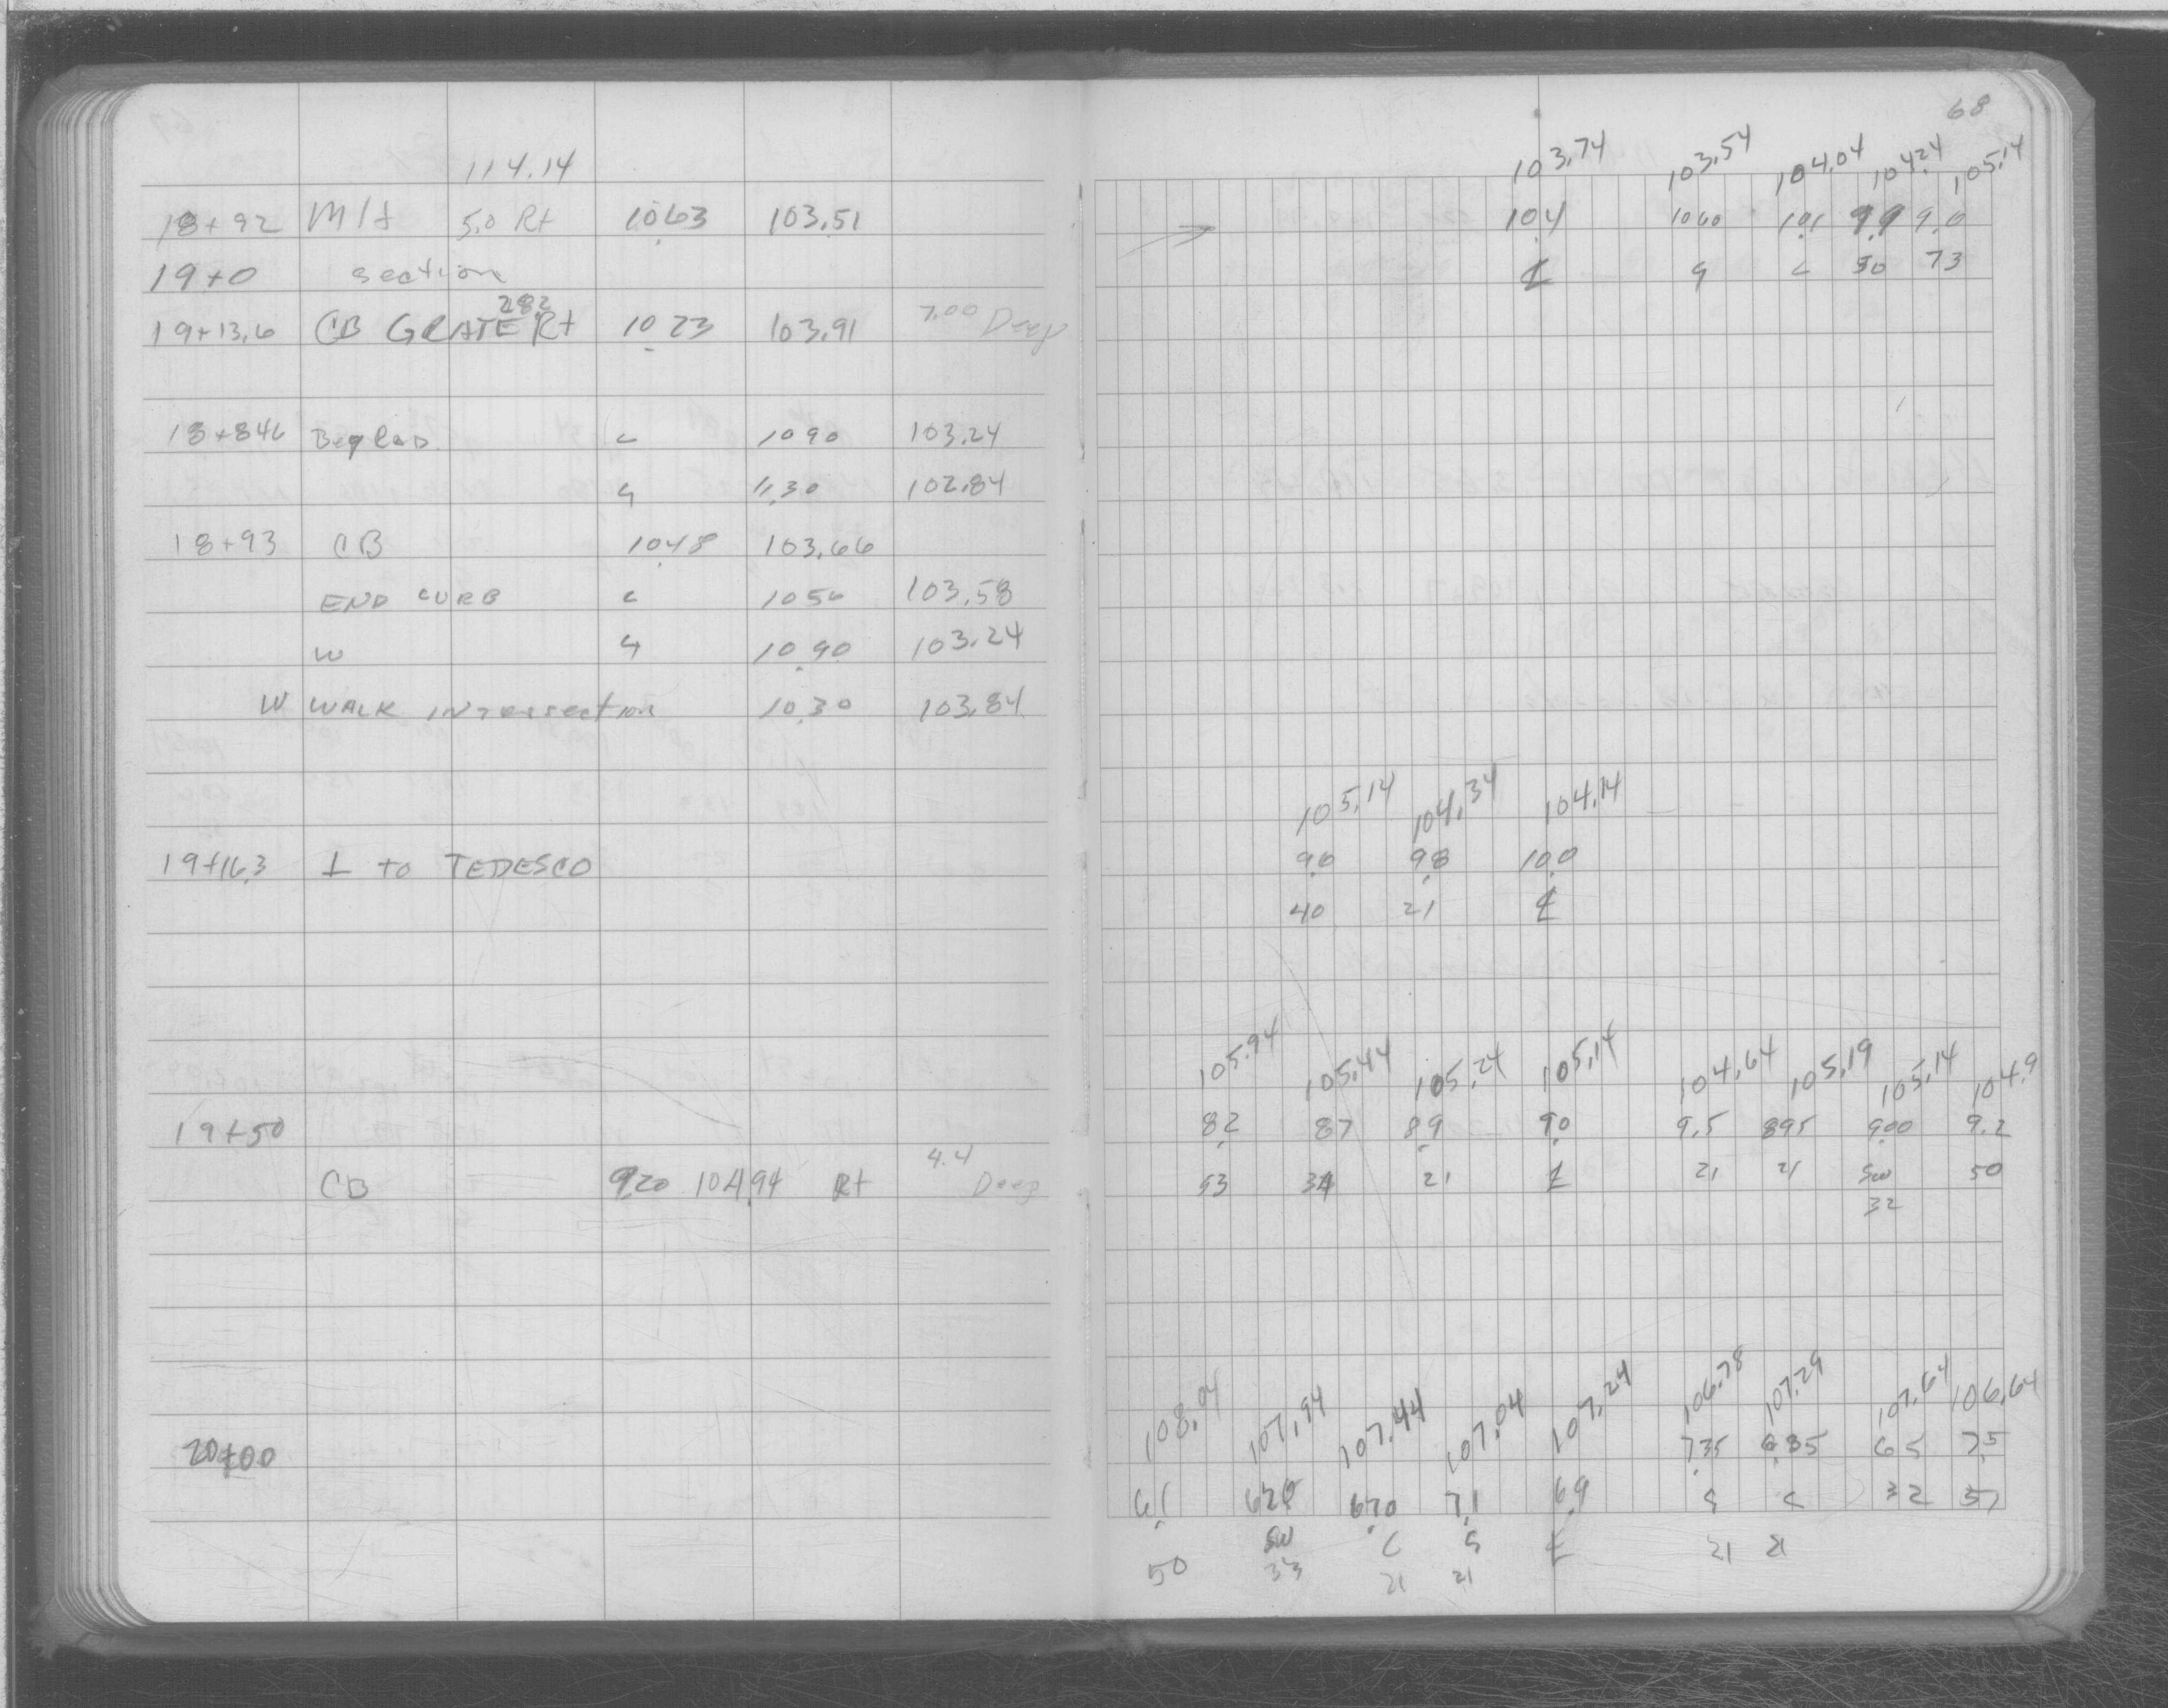 114.14
18+92 M/t 5.0 Rt 10.63 103.51
19+0 section
28.2
19+13.6 CB GRATE Rt 10.23 103.91 7.00 Deep
18+84.6 Beg Rad. c 10 90 103.24
G 11.30 102.84
18+93 CB 10.48 103.66
END CURB c 10 56 103.58
W G 10.90 103.24
W WALK INTersection 10.30 103.84
19+16.3 ⊥ to TEDESCO
19+50
CB 9.20 104.94 Rt 4.4 Deep
20+00
68
103.74 103.54 104.04 104.24 105.14
10.4 10 60 10.1 9.9 9.0
℄ G c 50 73
105.14 104.34 104.14
9.0 9.8 10.0
40 21 ℄
105.94 105.44 105.24 105.14 104.64 105.19 105.14 104.9
8.2 8 7 8.9 9.0 9.5 895 9.00 9.2
53 34 21 ℄ 21 21 SW 50
32
108.04 107.94 107.44 107.04 107.24 106.78 107.29 107.64 106.64
7.35 6.85 6 5 7.5
6.1 620 6.70 7.1 6.9 G c 32 51
SW C G ℄ 21 21
50 33 21 21